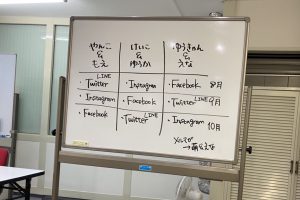 やんこ けいこ ゆうきゃん
& & &
もえ ゆうか うな
LINE
Twitter ・Instagram ・Facebook 8月
・Instagram ・Facebook ・Twitter LINE 9月
・Facebook ・Twitter LINE ・Instagram 10月
メルマガ